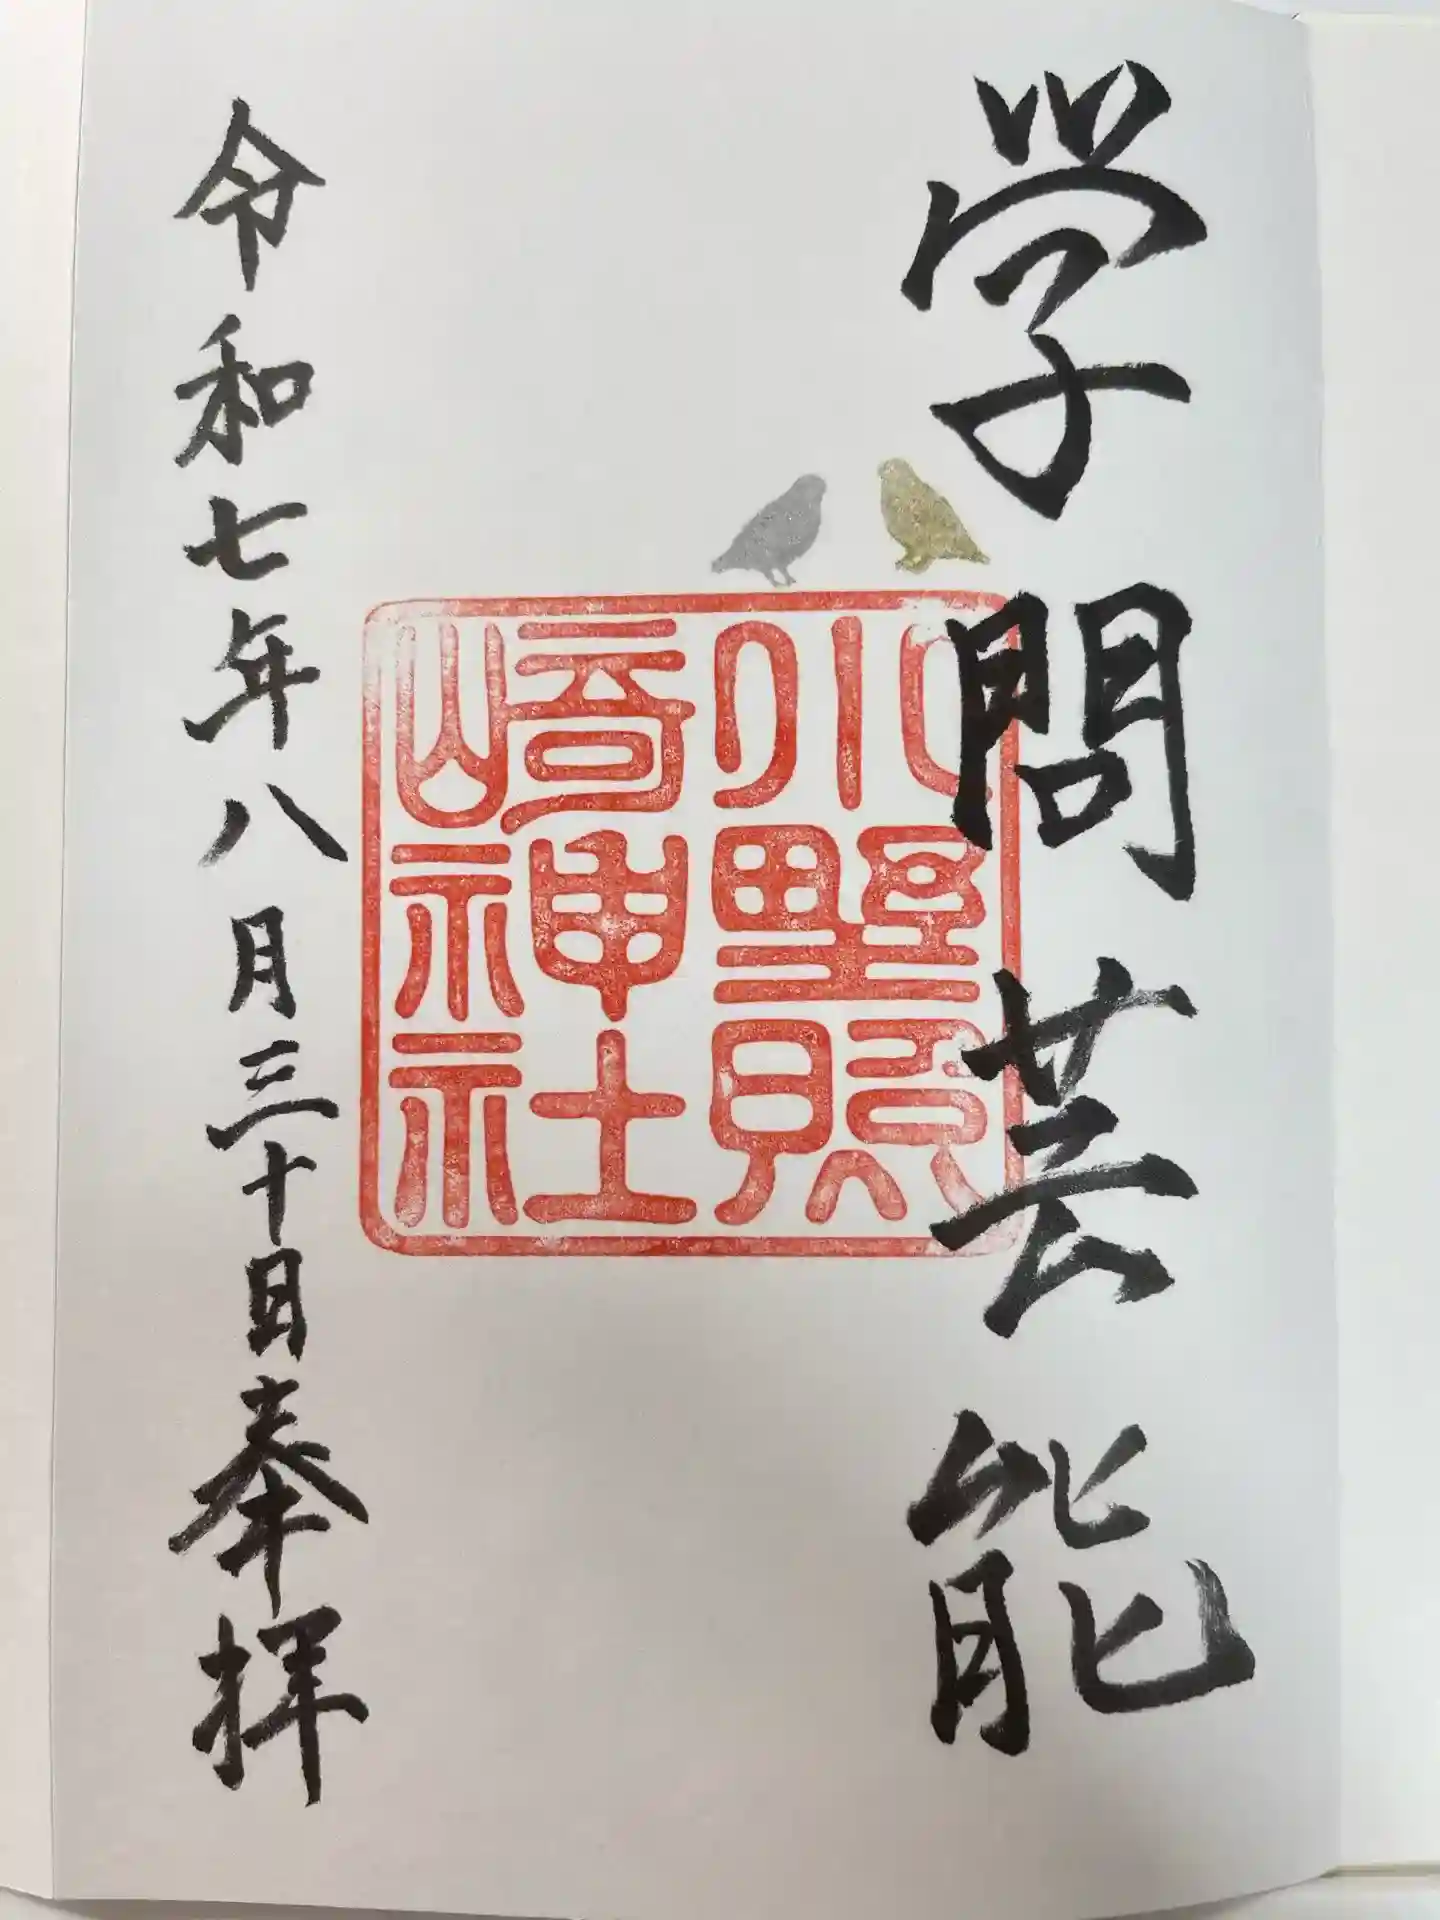 学問芸能
小野照
崎神社
令和七年八月三十日奉拝